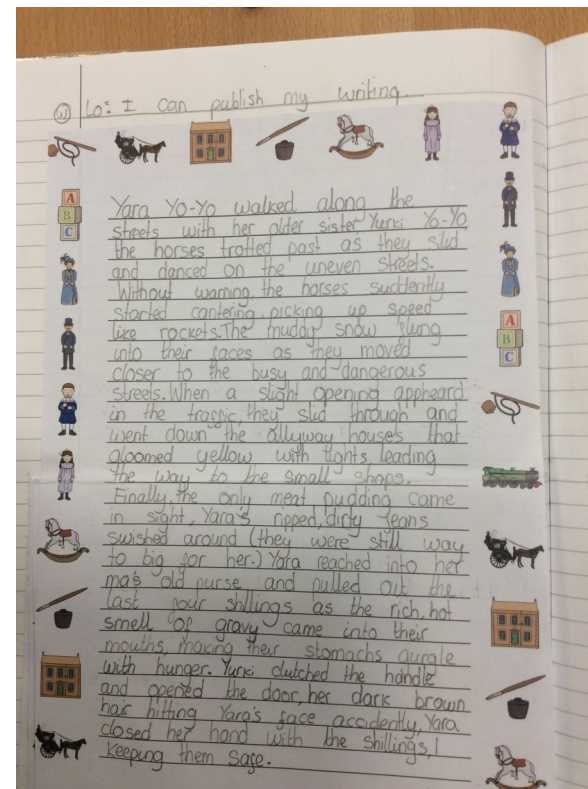 W Lo: I can publish my writing.
Yara Yo-Yo walked along the
streets with her older sister Yurki Yo-Yo,
the horses trotted past as they slid
and danced on the uneven streets.
Without warning, the horses suddently
started cantering, picking up speed
like rockets. The muddy snow flung
into their faces as they moved
closer to the busy and dangerous
streets. When a slight opening appheard
in the traffic, they slid through and
went down the allyway houses that
gloomed yellow with lights leading
the way to the small shops.
Finally, the only meat pudding came
in sight, Yara's ripped, dirty jeans
swished around (they were still way
to big for her.) Yara reached into her
ma's old purse and pulled out the
last four shillings as the rich, hot
smell of gravy came into their
mouths, making their stomachs gurgle
with hunger. Yurki clutched the handle
and opened the door, her dark brown
hair hitting Yara's face accidently, Yara
closed her hand with the shillings,
keeping them safe.
A
B
C
A
B
C